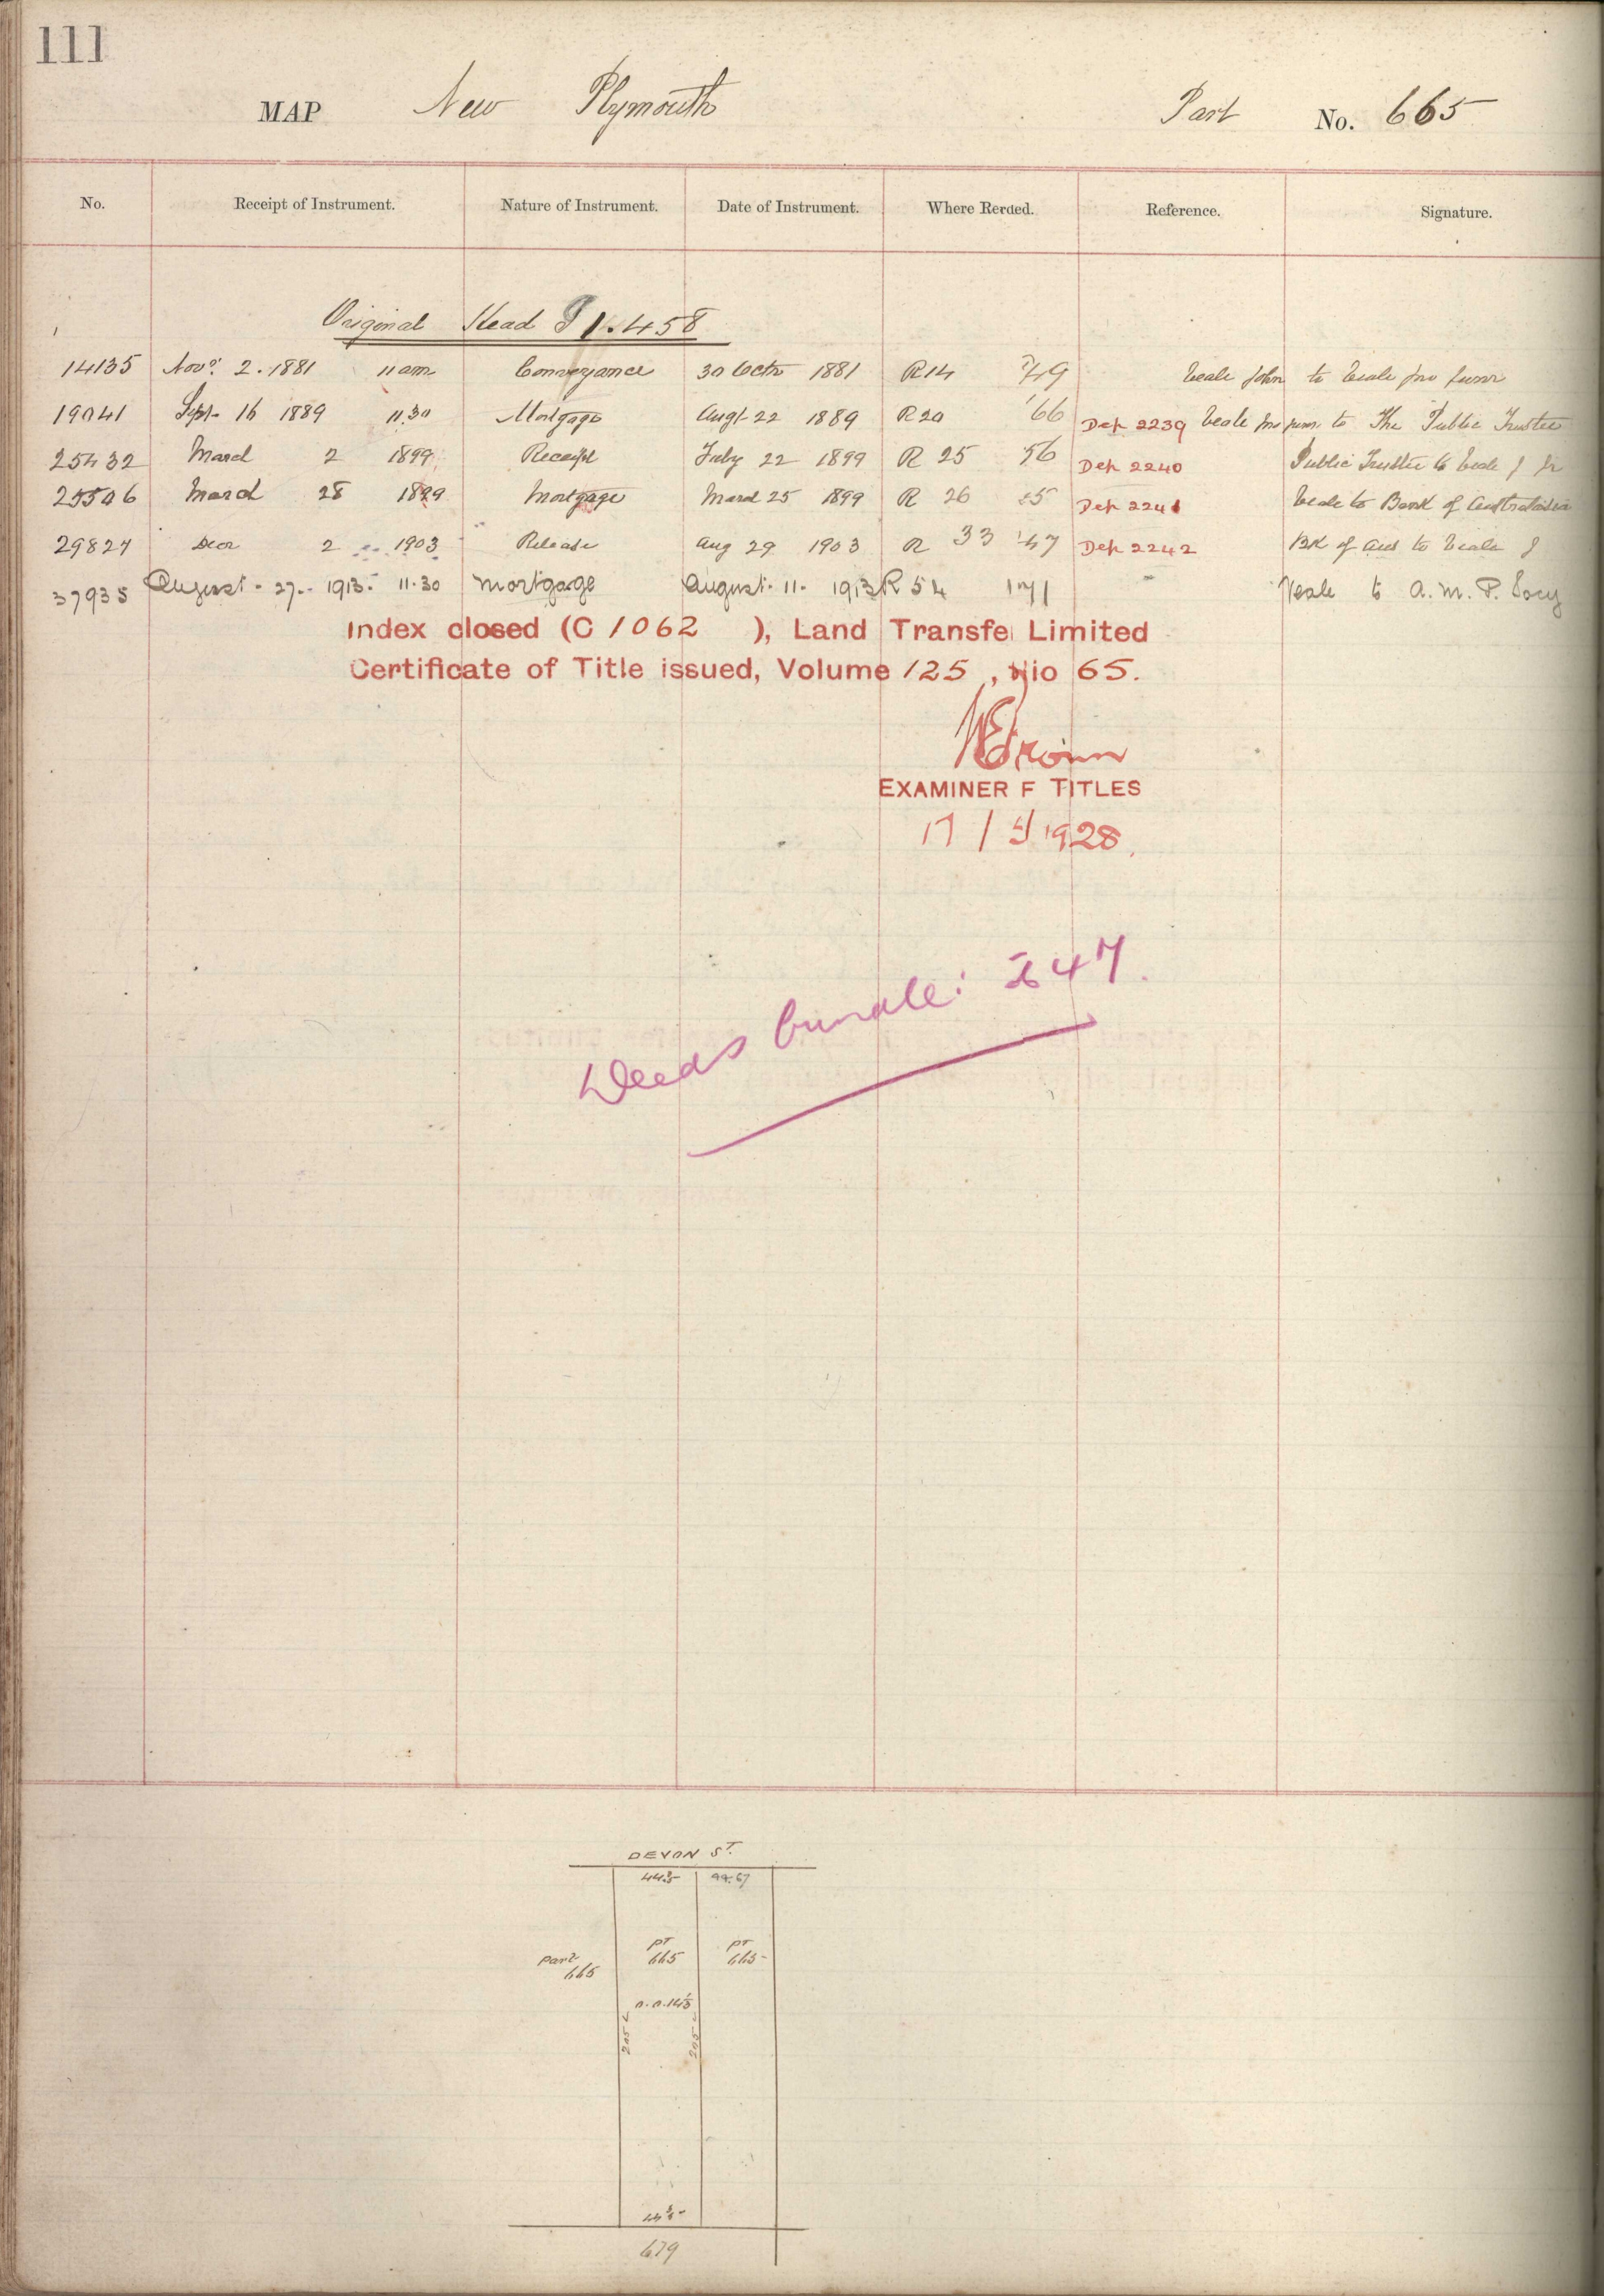 111
MAP New Plymouth Part No. 665
No. Receipt of Instrument. Nature of Instrument. Date of Instrument. Where Rerded. Reference. Signature.
Original Head 1.458
14135 Novr 2. 1881 11 am Conveyance 30 Octr 1881 R14 749 Veale John to Veale Jno Junr
19041 Sept 16 1889 11.30 Mortgage Augt 22 1889 R20 166 Dep 2239 Veale Jno Junr to The Public Trustee
25432 March 2 1899 Receipt July 22 1899 R 25 Dep 2240 Public Trustee to Veale J Jr
25506 March 28 1899 Mortgage March 25 1899 R 26 Dep 2241 Veale to Bank of Australasia
29827 Decr 2 1903 Release Aug 29 1903 R 33 147 Dep 2242 Bk of Aus to Veale J
37935 August 27 1913 11.30 Mortgage August 11 1913 R 54 171 Veale to A.M.P. Socy
Index closed (C 1062 ), Land Transfe Limited
Certificate of Title issued, Volume 125, lio 65.
EXAMINER F TITLES
17 / 5/ 1928.
Deeds bundle: 247.
DEVON ST.
44.67
part 665 pt 665 pt 665
205 205
679